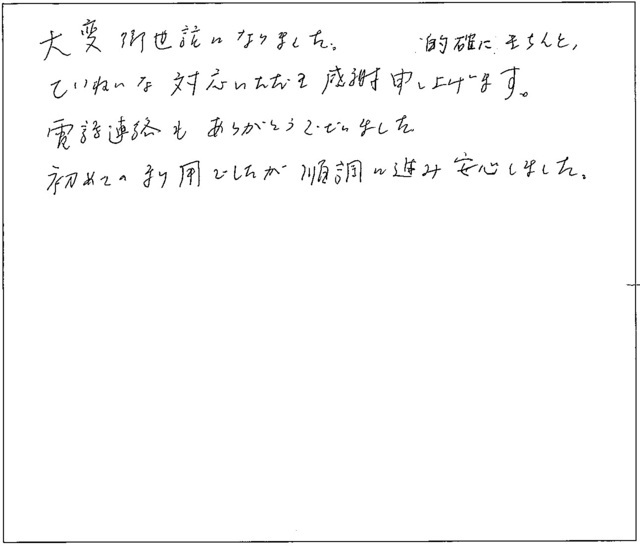 大変御世話になりました。 的確にきちんと、
ていねいな対応いただき感謝申し上げます。
電話連絡もありがとうございました
初めての利用でしたが順調に進み安心しました。